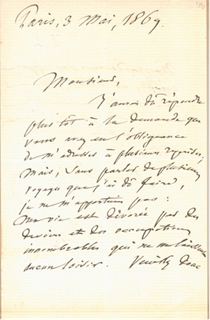 Paris, 3 Mai, 1869.
Monsieur,
J'aurais dû répondre
plus tôt à la demande que
vous avez eu l'obligeance
de m'adresser à plusieurs reprises,
Mais, sans parler de plusieurs
voyages que j'ai dû faire,
je ne m'appartiens pas :
Ma vie est dévorée par des
devoirs et des occupations
innombrables qui ne me laissent
aucun loisir. Veuillez donc